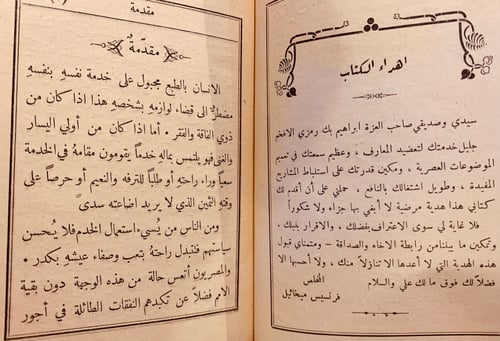 اهداء الكتاب
سيدي وصديقي صاحب العزة ابراهيم بك رمزي الافخم
جليل خدمتك لتعضيد المعارف، وعظيم سمعتك في تعميم
الموضوعات العصرية، ومكين قدرتك على استنباط المشاريع
المفيدة، وطويل اشتغالك بالنافع، حملني على أن أقدم لك
كتابي هذا هدية مرضية لا أبغي بها جزاء ولا شكورا
فلا غاية لي سوى الاعتراف بفضلك، والاقرار بنبلك،
وتمكين ما بيننا من رابطة الاخاء والصداقة – ومتمناي قبول
هذه الهدية التي لا أعدها الا تنازلا منك، ولا أحسبها الا
فضلا لك فوق ما لك علي والسلام
المخلص
فرنسيس ميخائيل
مقدمة
مقدمة
الانسان بالطبع مجبول على خدمة نفسه بنفسه
مضطر الى قضاء لوازمه بشخصه هذا اذا كان من
ذوي الفاقة والفقر. أما اذا كان من أولي اليسار
والغنى فهو يلتمس بماله خدما يقومون مقامه في الخدمة
سعيا وراء راحته أو طلبا للترفه والنعيم أو حرصا على
وقته الثمين الذي لا يريد اضاعته سدى
ومن الناس من يسيء استعمال الخدم فلا يحسن
سياستهم فتبدل راحته بتعب وصفاء عيشه بكدر.
والمصريون أتعس حالة من هذه الوجهة دون بقية
الامم فضلا عن تكبدهم النفقات الطائلة في أجور